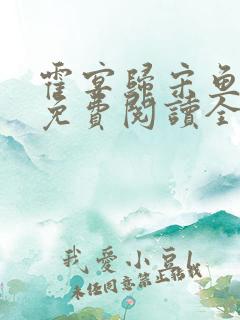 霍宴歸宋魚
免費閱讀全
我愛小豆l
未經同意禁止轉載